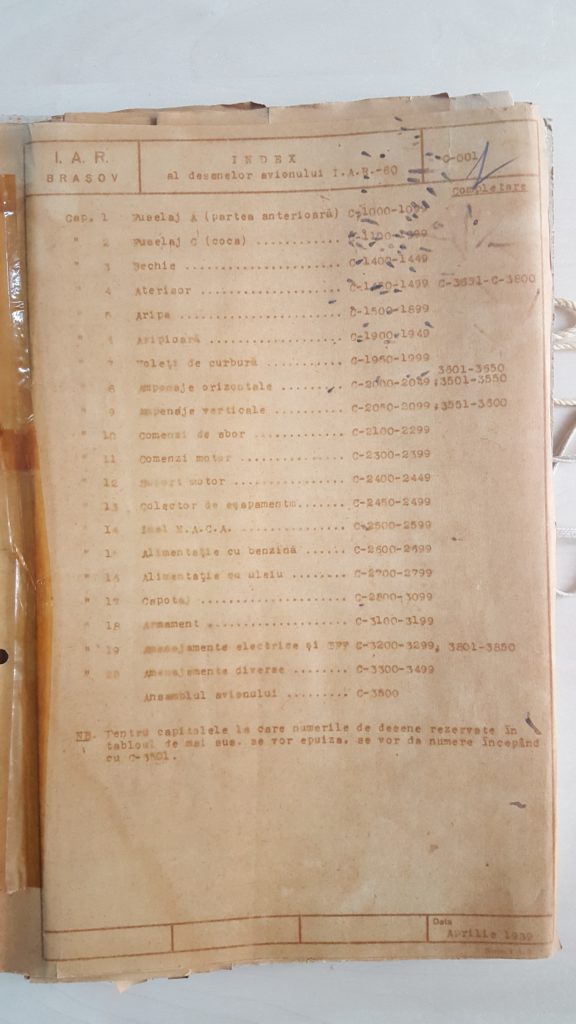 I. A. R.
BRAŞOV
INDEX
al desenelor avionului I.A.R.-80
C-001
Completare
Cap. 1 Fuselaj A (partea anterioară) C-1000-1099
" 2 Fuselaj C (coca) ............ C-1100-1399
" 3 Bechie ...................... C-1400-1449
" 4 Aterisor .................... C-1450-1499 C-3651-C-3800
" 5 Aripa ....................... C-1500-1899
" 6 Aripioară ................... C-1900-1949
" 7 Voleţi de curbură ........... C-1950-1999
3601-3650
" 8 Ampenaje orizontale ......... C-2000-2049 ;3501-3550
" 9 Ampenaje verticale .......... C-2050-2099 ;3551-3600
" 10 Comenzi de sbor ............. C-2100-2299
" 11 Comenzi motor ............... C-2300-2399
" 12 Suport motor ................ C-2400-2449
" 13 Colector de eşapamente....... C-2450-2499
" 14 Inel N.A.C.A. ............... C-2500-2599
" 15 Alimentaţie cu benzină ...... C-2600-2699
" 16 Alimentaţie cu uleiu ........ C-2700-2799
" 17 Capotaj ..................... C-2800-3099
" 18 Armament .................... C-3100-3199
" 19 Amenajamente electrice şi TFF C-3200-3299, 3801-3850
" 20 Amenajamente diverse ........ C-3300-3499
Ansamblul avionului ......... C-3500
NB. Pentru capitolele la care numerile de desene rezervate în
tabloul de mai sus, se vor epuiza, se vor da numere începând
cu C-3501.
Data
Aprilie 1939